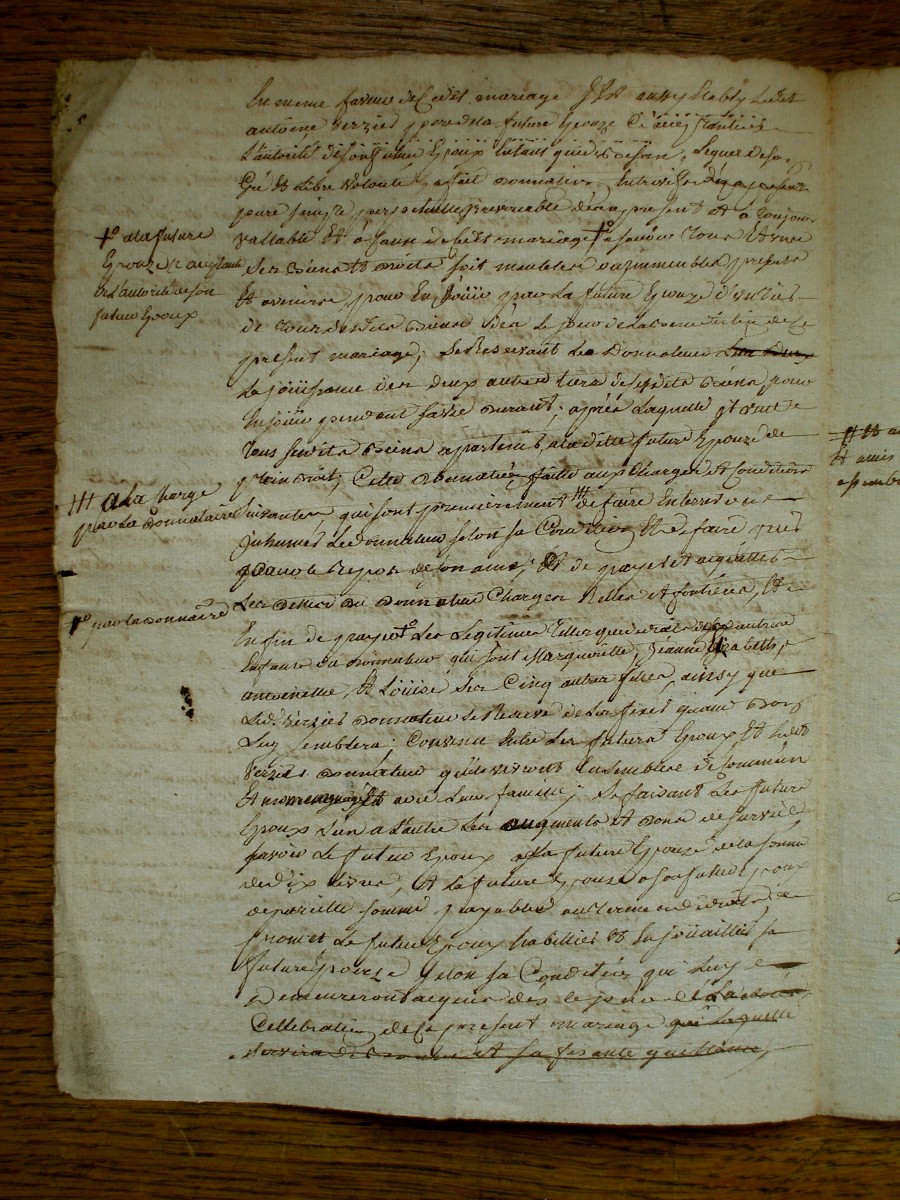 En meme faveur de Cedit mariage Est aussy Etably Ledit
antoine verziés pere de la future Epouze
L'autorité de son futur Epoux
Gré et Libre volonté a fait donnation Entrevifs
pure simple perpetuelle Irrevocable des a present et a toujours
vallable et a faveur de Cedit mariage +° a sçavoir tous et un
ses biens et droits soit meubles ou immeubles presents
et avenirs, pour En joüir par La future Epouze d'un tiers
de tous sesdits biens des Le jour de la
present mariage; se Reservant Le Donnateur
La joüissance des deux autres tiers desdits biens pour
En joüir pendant sa vie durant; après Laquelle
tous sesdits biens apartenir a laditte future Epouze de
plein droit; Cette donnation faitte aux Charges et Conditions
suivantes, qui sont premierement ╫ de faire Enterrer
Inhumer Le donnateur selon sa Condition Et de faire prier
pour le Repos de son ame; Et de payer et acquitter
Les dettes du donnateur Charges Reelles et foncieres, Et
Enfin de payer +° Les Legitimes telles que de droit
Enfants du donnateur qui sont Marguerite, Jeanne, Elizabeth,
antoinette, et Loüise ses Cinq autres filles, ainsy que
Ledt verziés donnateur se Reserve de Les fixer quand bon
Luy semblera; Convenu Entre Les futurs Epoux Et Ledit
verziés donnateur qu'ils vivront Ensemble de Commun
Et avec Leur famille; Se faisant Les futurs
Epoux L'un a L'autre Les augments et dons de survie
sçavoir Le futur Epoux a La future Epouze de la somme
de dix Livres, et La future Epouze a son futur Epoux
de pareille somme payables aux termes de droit;
promet Le futur Epoux habiller et En joüailler sa
future Epouze selon sa Condition qui Luy
Demeureront acquis des le jour de La
Cellebration de Ce present mariage qui Laquelle
servira de
+° a la future
Epouze acceptante
de L'autorité de son
futur Epoux
╫ a La Charge
par La donnataire
+° par La donnatre
Et au
Et amis
assemblé